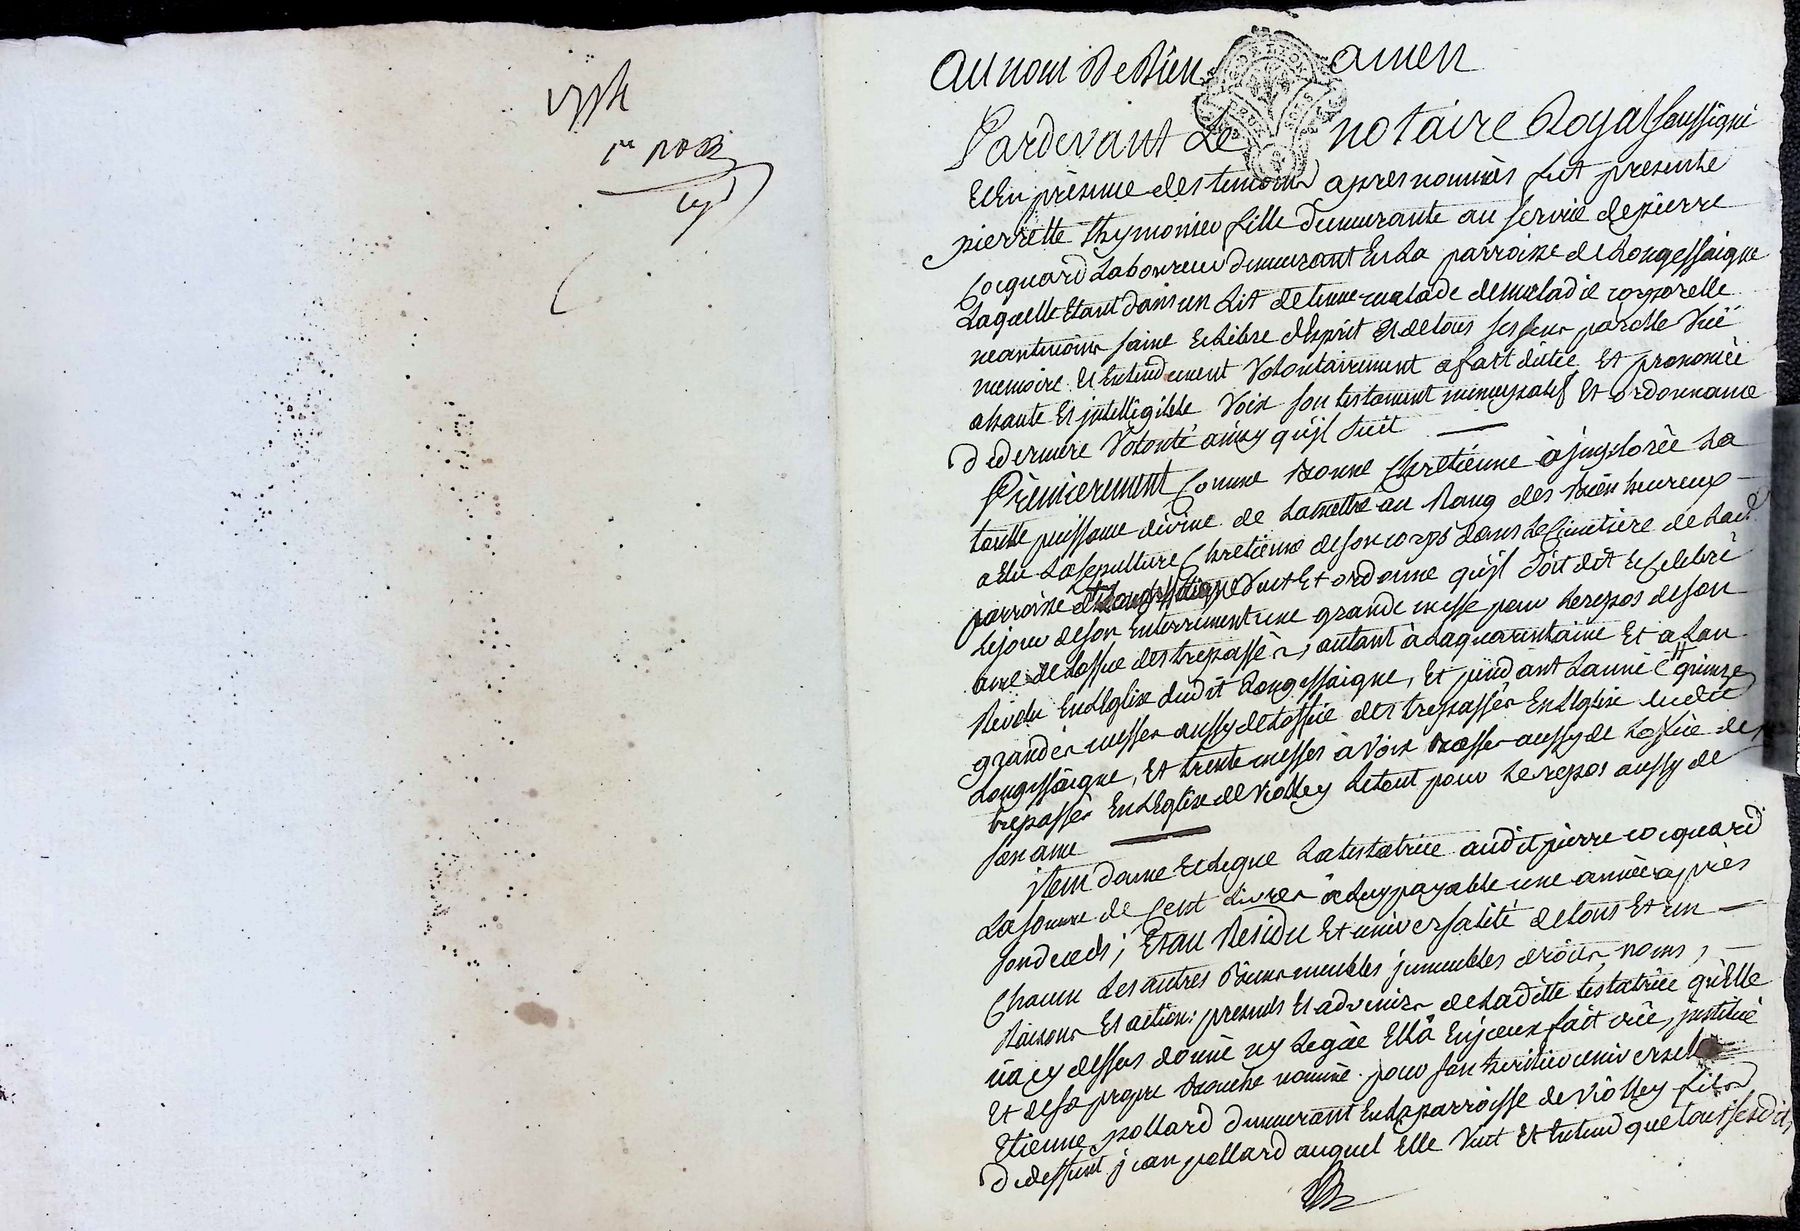 Au nom De Dieu amen
Pardevant Le notaire Royal soussigné
Et En présence des temoins apres nommés fut presente
pierrette thymonier fille demeurante au service de pierre
Cocquard Laboureur demeurant En La parroisse de Longessaigne
Laquelle Etant dans un Lit detenue malade de maladie corporelle
neantmoins saine Et Libre d'Esprit Et de tous ses sens parolle Vuë
memoire Et Entendement Volontairement a fait dictée Et prononcée
a haute Et jntelligible Voix son testament nuncupatif Et ordonnance
de derniere Volonté ainsy qu'jl suit
Premierement Comme Bonne Chretienne a jmplorée La
toutte puissance divine de La mettre au Rang des Bien heureux
a Elu La sepulture Chretienne de son corps dans Le Cimetiere de Lad
parroisse de Longessaigne Veut Et ordonne qu'jl soit dit Et Celebré
Le jour de son Enterrement une grande messe pour Le repos de son
ame de Loffice des trepassés, autant à La quarantaine Et a Lan
Revolu En L'Eglise dudit Longessaigne, Et pendant Lannée quinze
grandes messes aussy de Loffice des trepassés En L'Eglise dudit
Longessaigne, Et trente messes à Voix Basse aussy de Loffice des
trepassés En L'Eglise de Violley Le tout pour Le repos aussy de
son ame
jtem donne Et Legue La testatrice audit pierre cocquard
La somme de Cent Livres a Luy payable une année après
son deceds; Et au Residu Et universalité de tous Et un
Chacun Les autres Biens meubles jmmeubles droits noms,
Raisons Et actions presents Et advenirs de Laditte testatrice qu'Elle
n'a cy dessus donné ny Legué Elle a En jceux fait crée, jnstitué
Et de sa propre Bouche nommé pour son heritier universel
Etienne pollard demeurant En La parroisse de Viollay fils
de deffunt jean pollard auquel Elle Veut Et Entend que tous sesdits